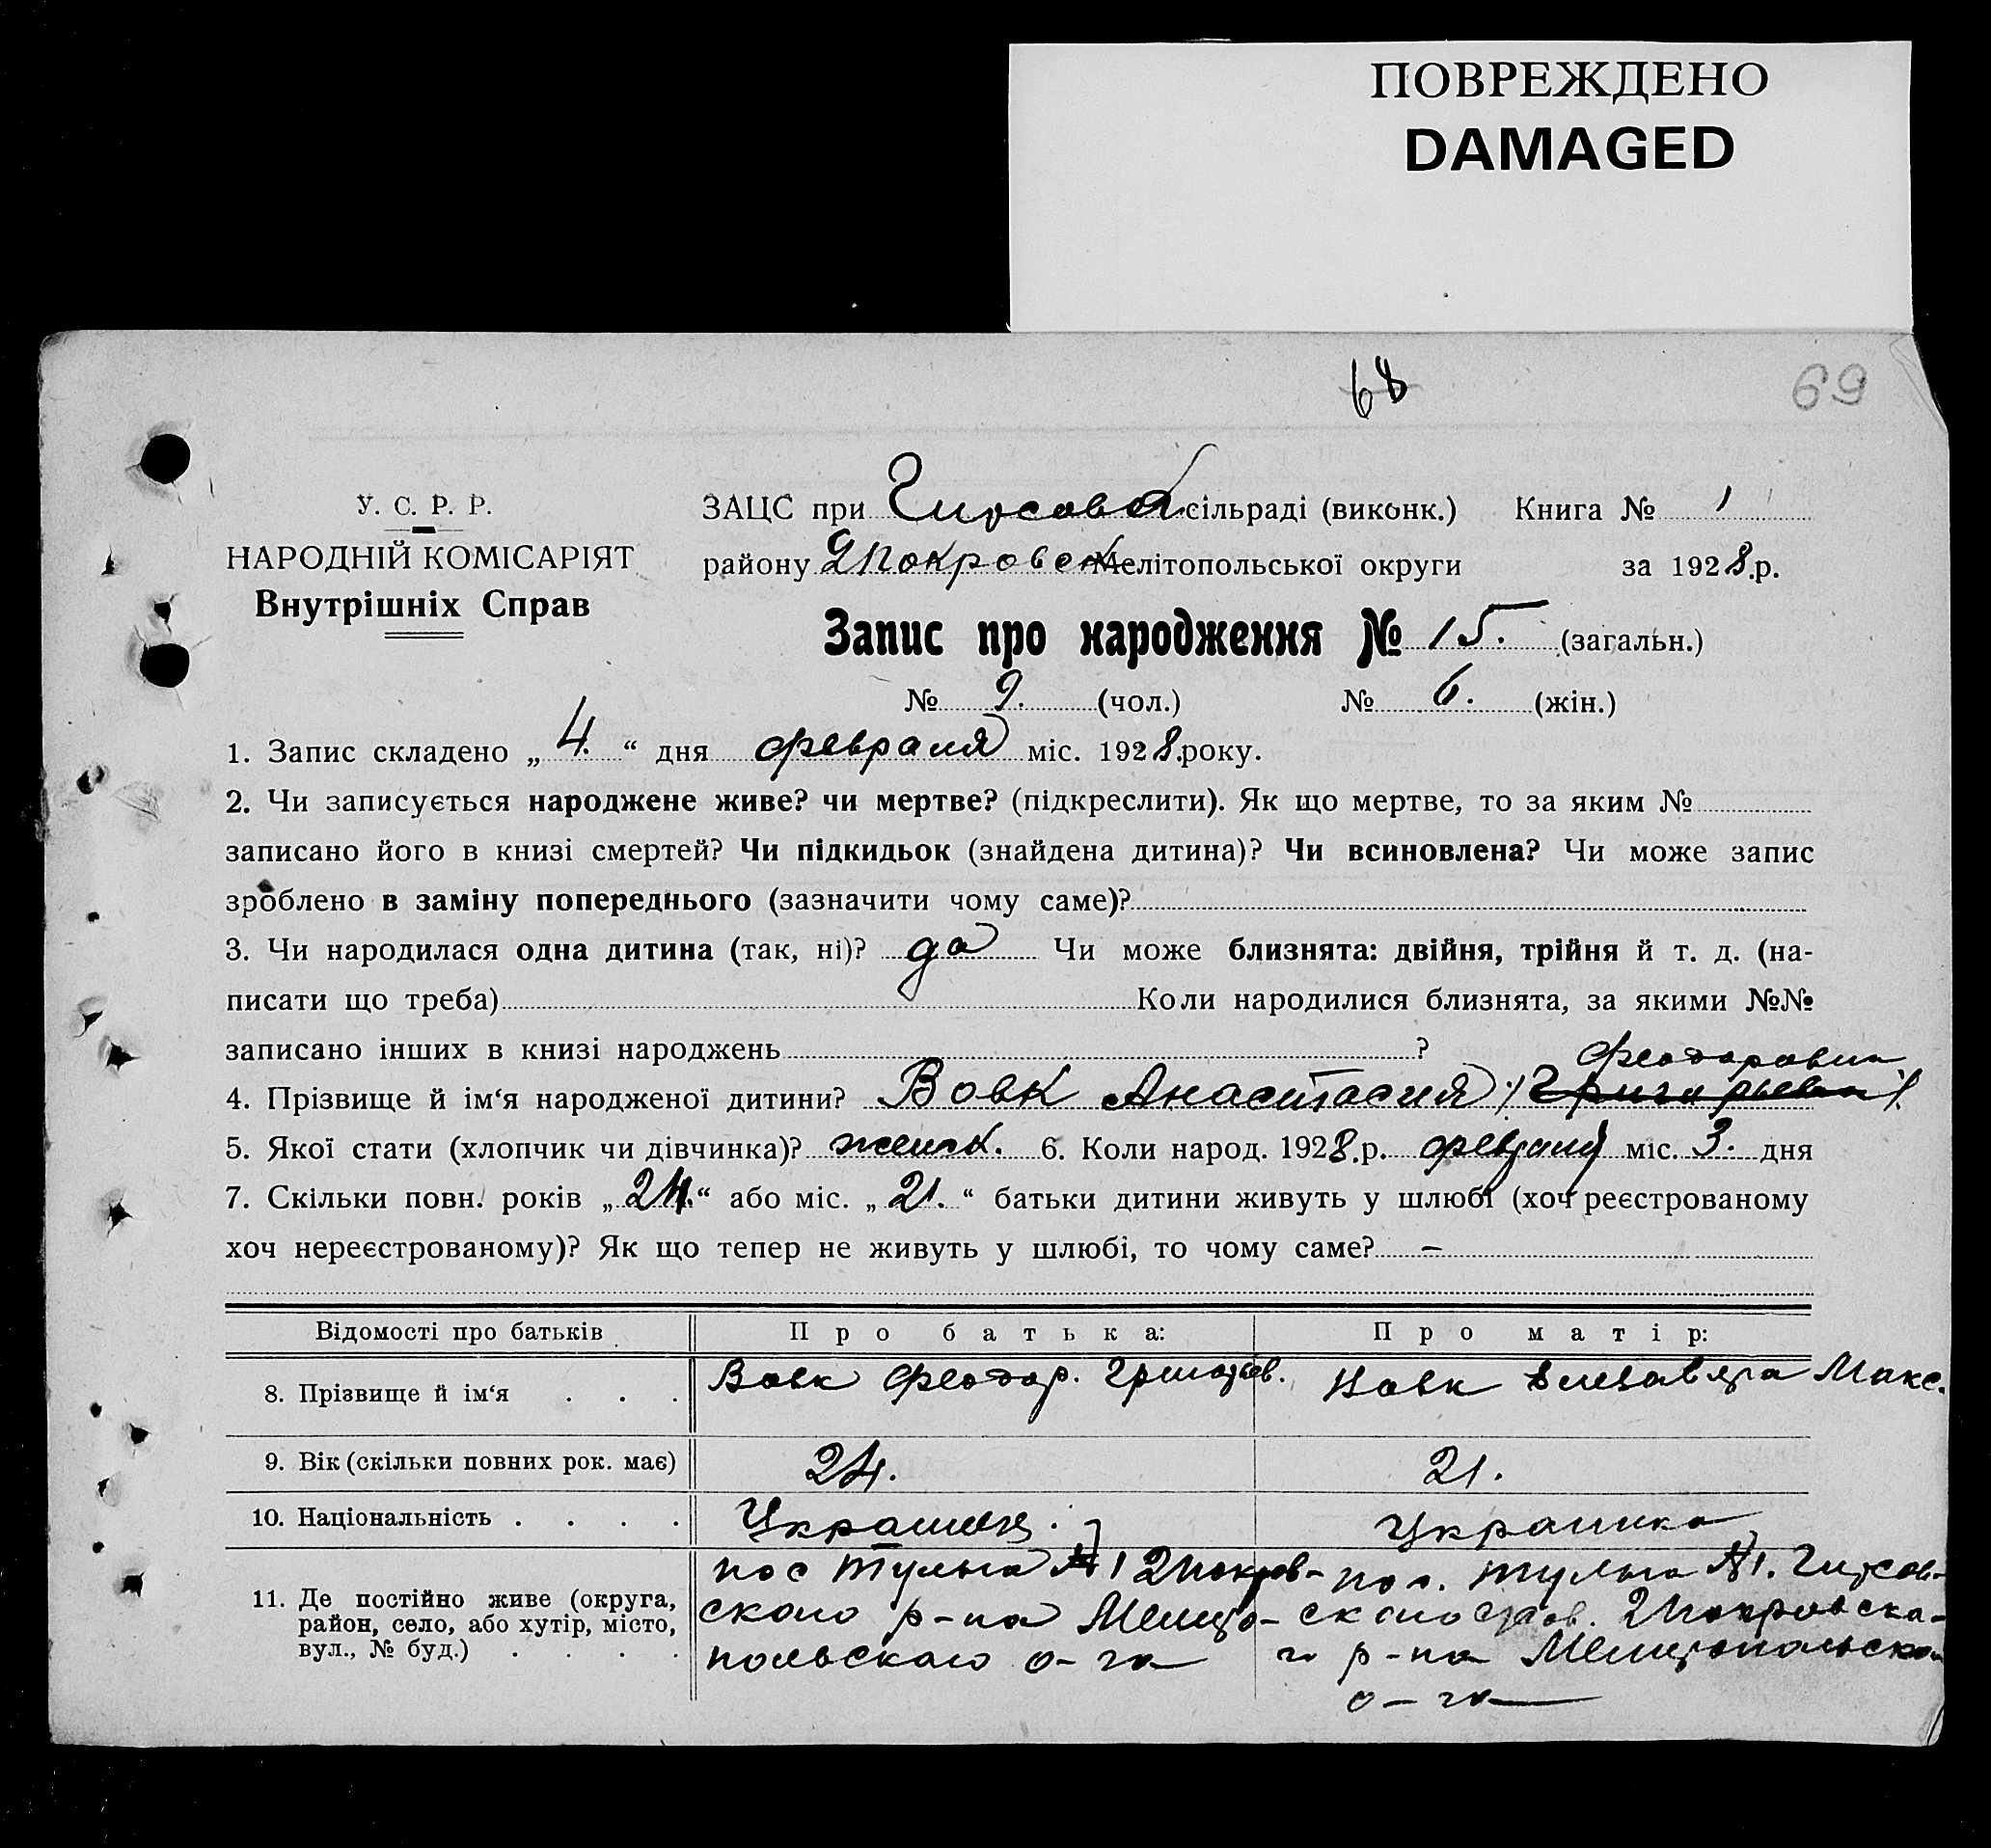 ПОВРЕЖДЕНО
DAMAGED
68
69
У. С. Р. Р.
НАРОДНІЙ КОМІСАРІЯТ
Внутрішніх Справ
ЗАЦС при Гирсовой сільраді (виконк.) Книга № 1
району Мелітопольської округи за 1928.р.
Запис про народження № 15. (загальн.)
№ 9. (чол.) № 6. (жін.)
1. Запис складено „4.“ дня февраля міс. 1928.року.
2. Чи записується народжене живе? чи мертве? (підкреслити). Як що мертве, то за яким №
записано його в книзі смертей? Чи підкидьок (знайдена дитина)? Чи всиновлена? Чи може запис
зроблено в заміну попереднього (зазначити чому саме)?
3. Чи народилася одна дитина (так, ні)? да Чи може близнята: двійня, трійня й т. д. (на-
писати що треба) Коли народилися близнята, за якими №№
записано інших в книзі народжень ?
Феодоровна
4. Прізвище й ім‘я народженої дитини? Вовк Анастасия Григорьевна
5. Якої стати (хлопчик чи дівчинка)? женск. 6. Коли народ. 1928.р. февраля міс. 3. дня
7. Скільки повн. років „24.“ або міс. „21.“ батьки дитини живуть у шлюбі (хоч реєстрованому
хоч нереєстрованому)? Як що тепер не живуть у шлюбі, то чому саме? –
Відомості про батьків Про батька: Про матір:
8. Прізвище й ім‘я . . . Вовк Феодор. Григорьев. Вовк Елизавета Макс.
9. Вік (скільки повних рок. має) 24. 21.
10. Національність . . . . Украинец. Украинка
11. Де постійно живе (округа, район, село, або хутір, місто, вул., № буд.) . . . .
пос №1 2Покров-
ского р-на Мелито-
польского о-га
пос. №1. Гирсов-
ского 2Покровско-
го р-на Мелитопольско
о-га